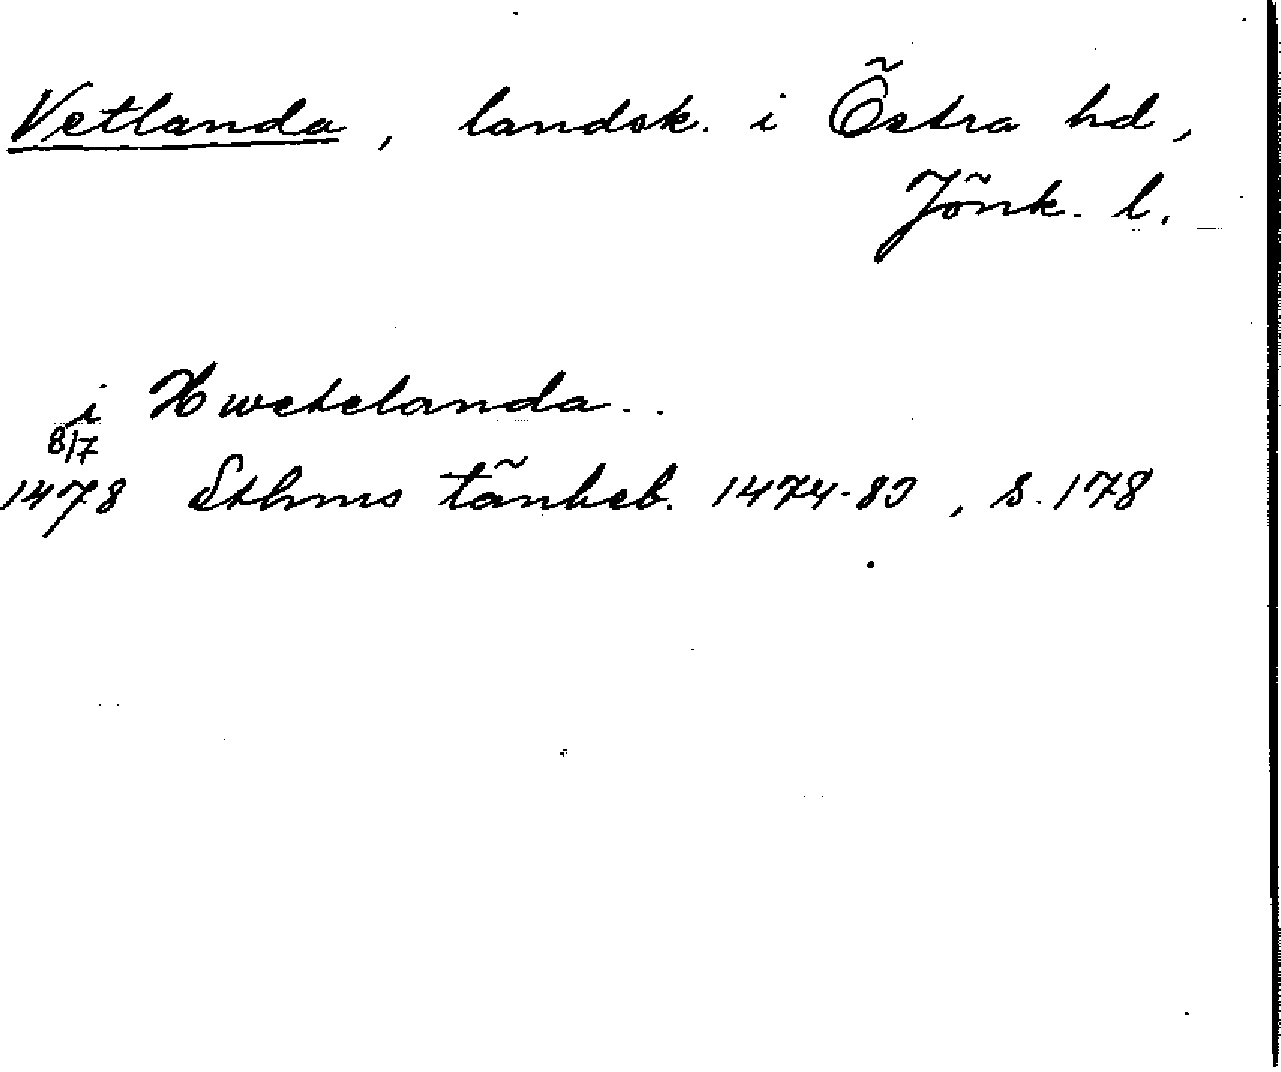 Vetlanda, landsk. i Östra hd,
Jönk. l.
i Hwetelanda..
8/7
1478 Sthms tänkeb. 1474-83, s. 178